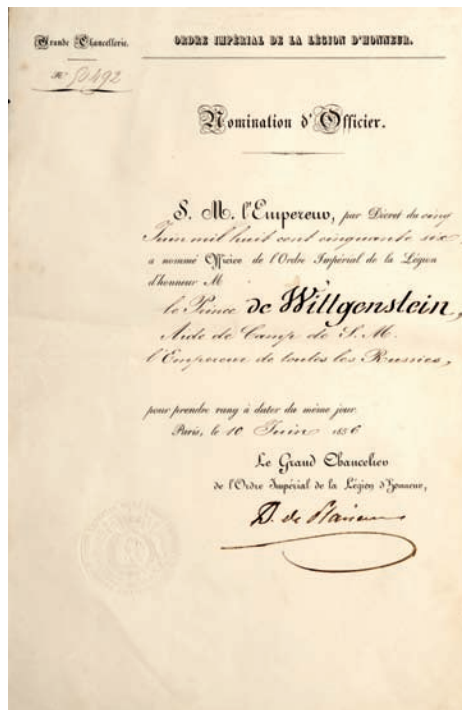 Grande Chancellerie.
ORDRE IMPÉRIAL DE LA LÉGION D'HONNEUR.
N°
Nomination d'Officier.
S. M. l'Empereur, par Décret du cinq
Juin mil huit cent cinquante six,
a nommé Officier de l'Ordre Impérial de la Légion
d'honneur M
le Prince de Willgenstein,
Aide de Camp de S. M.
l'Empereur de toutes les Russies,
pour prendre rang à dater du même jour.
Paris, le 10 Juin 1856
Le Grand Chancelier
de l'Ordre Impérial de la Légion d'Honneur,